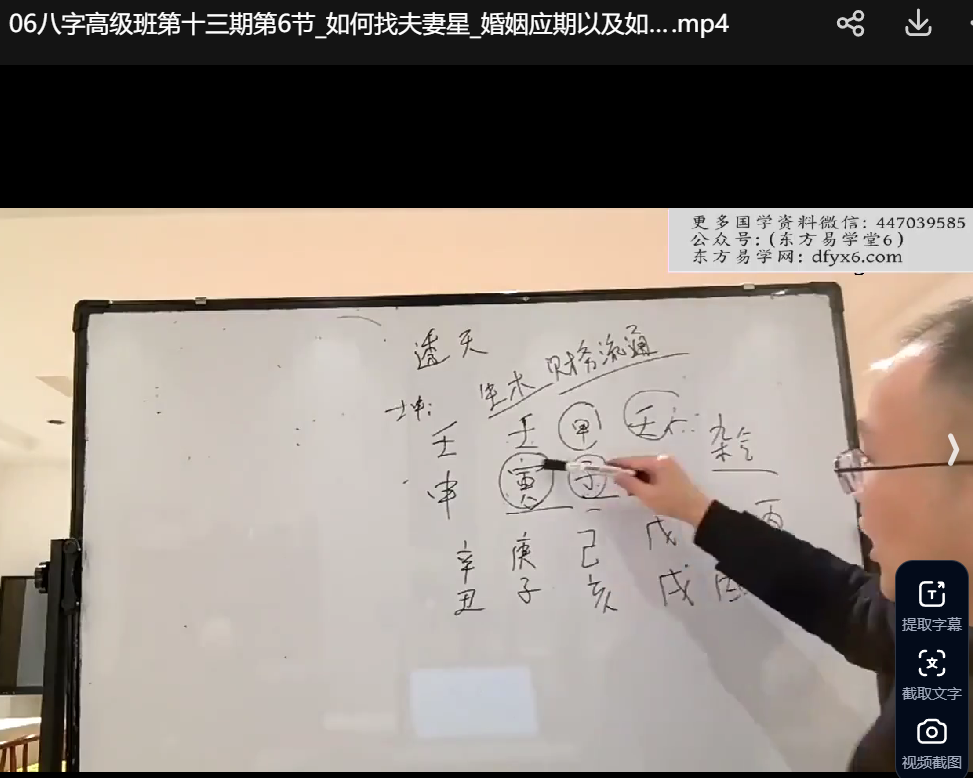 06八字高级班第十三期第6节_如何找夫妻星_婚姻应期以及如... .mp4
更多国学资料微信: 447039585
公众号:(东方易学堂6)
东方易学网: dfyx6.com
透天
生木 财务流通
坤:
壬 壬 甲 壬 杂气
申 寅 子
辛 庚 己 戊 酉
丑 子 亥 戌
提取字幕
截取文字
视频截图